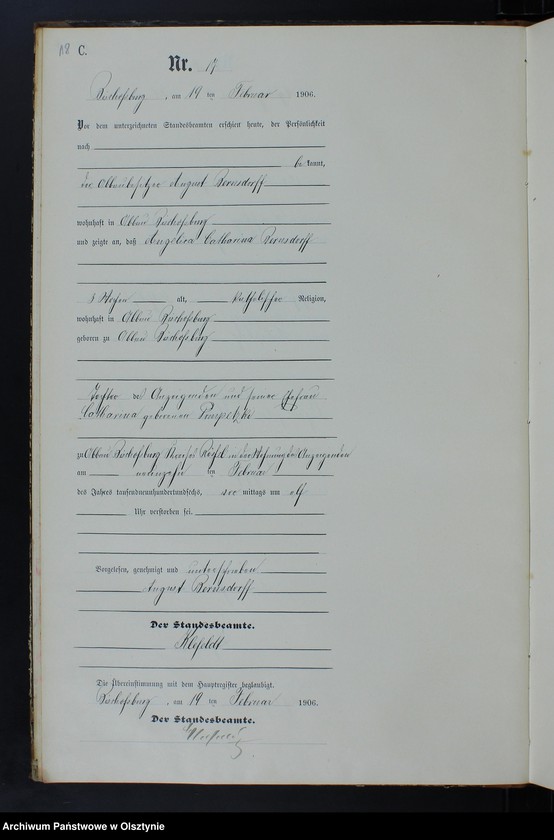 18 C.
Nr. 17
Bischofsburg, am 19 ten Februar 1906.
Vor dem unterzeichneten Standesbeamten erschien heute, der Persönlichkeit
nach
be kannt,
der Abbaubesitzer August Bornsdorff
wohnhaft in Abbau Bischofsburg
und zeigte an, daß Angelica Catharina Bornsdorff
3 Wochen alt, katholischer Religion,
wohnhaft in Abbau Bischofsburg
geboren zu Abbau Bischofsburg
Tochter des Anzeigenden und seiner Ehefrau
Catharina geborenen
zu Abbau Bischofsburg Kreises Rößel in der Wohnung des Anzeigenden
am neunzehn ten Februar
des Jahres tausendneunhundertundsechs, vor mittags um elf
Uhr verstorben sei.
Vorgelesen, genehmigt und unterschrieben
August Bornsdorff
Der Standesbeamte.
Klefeldt
Die Übereinstimmung mit dem Hauptregister beglaubigt.
Bischofsburg, am 19 ten Februar 1906.
Der Standesbeamte.
Archiwum Państwowe w Olsztynie